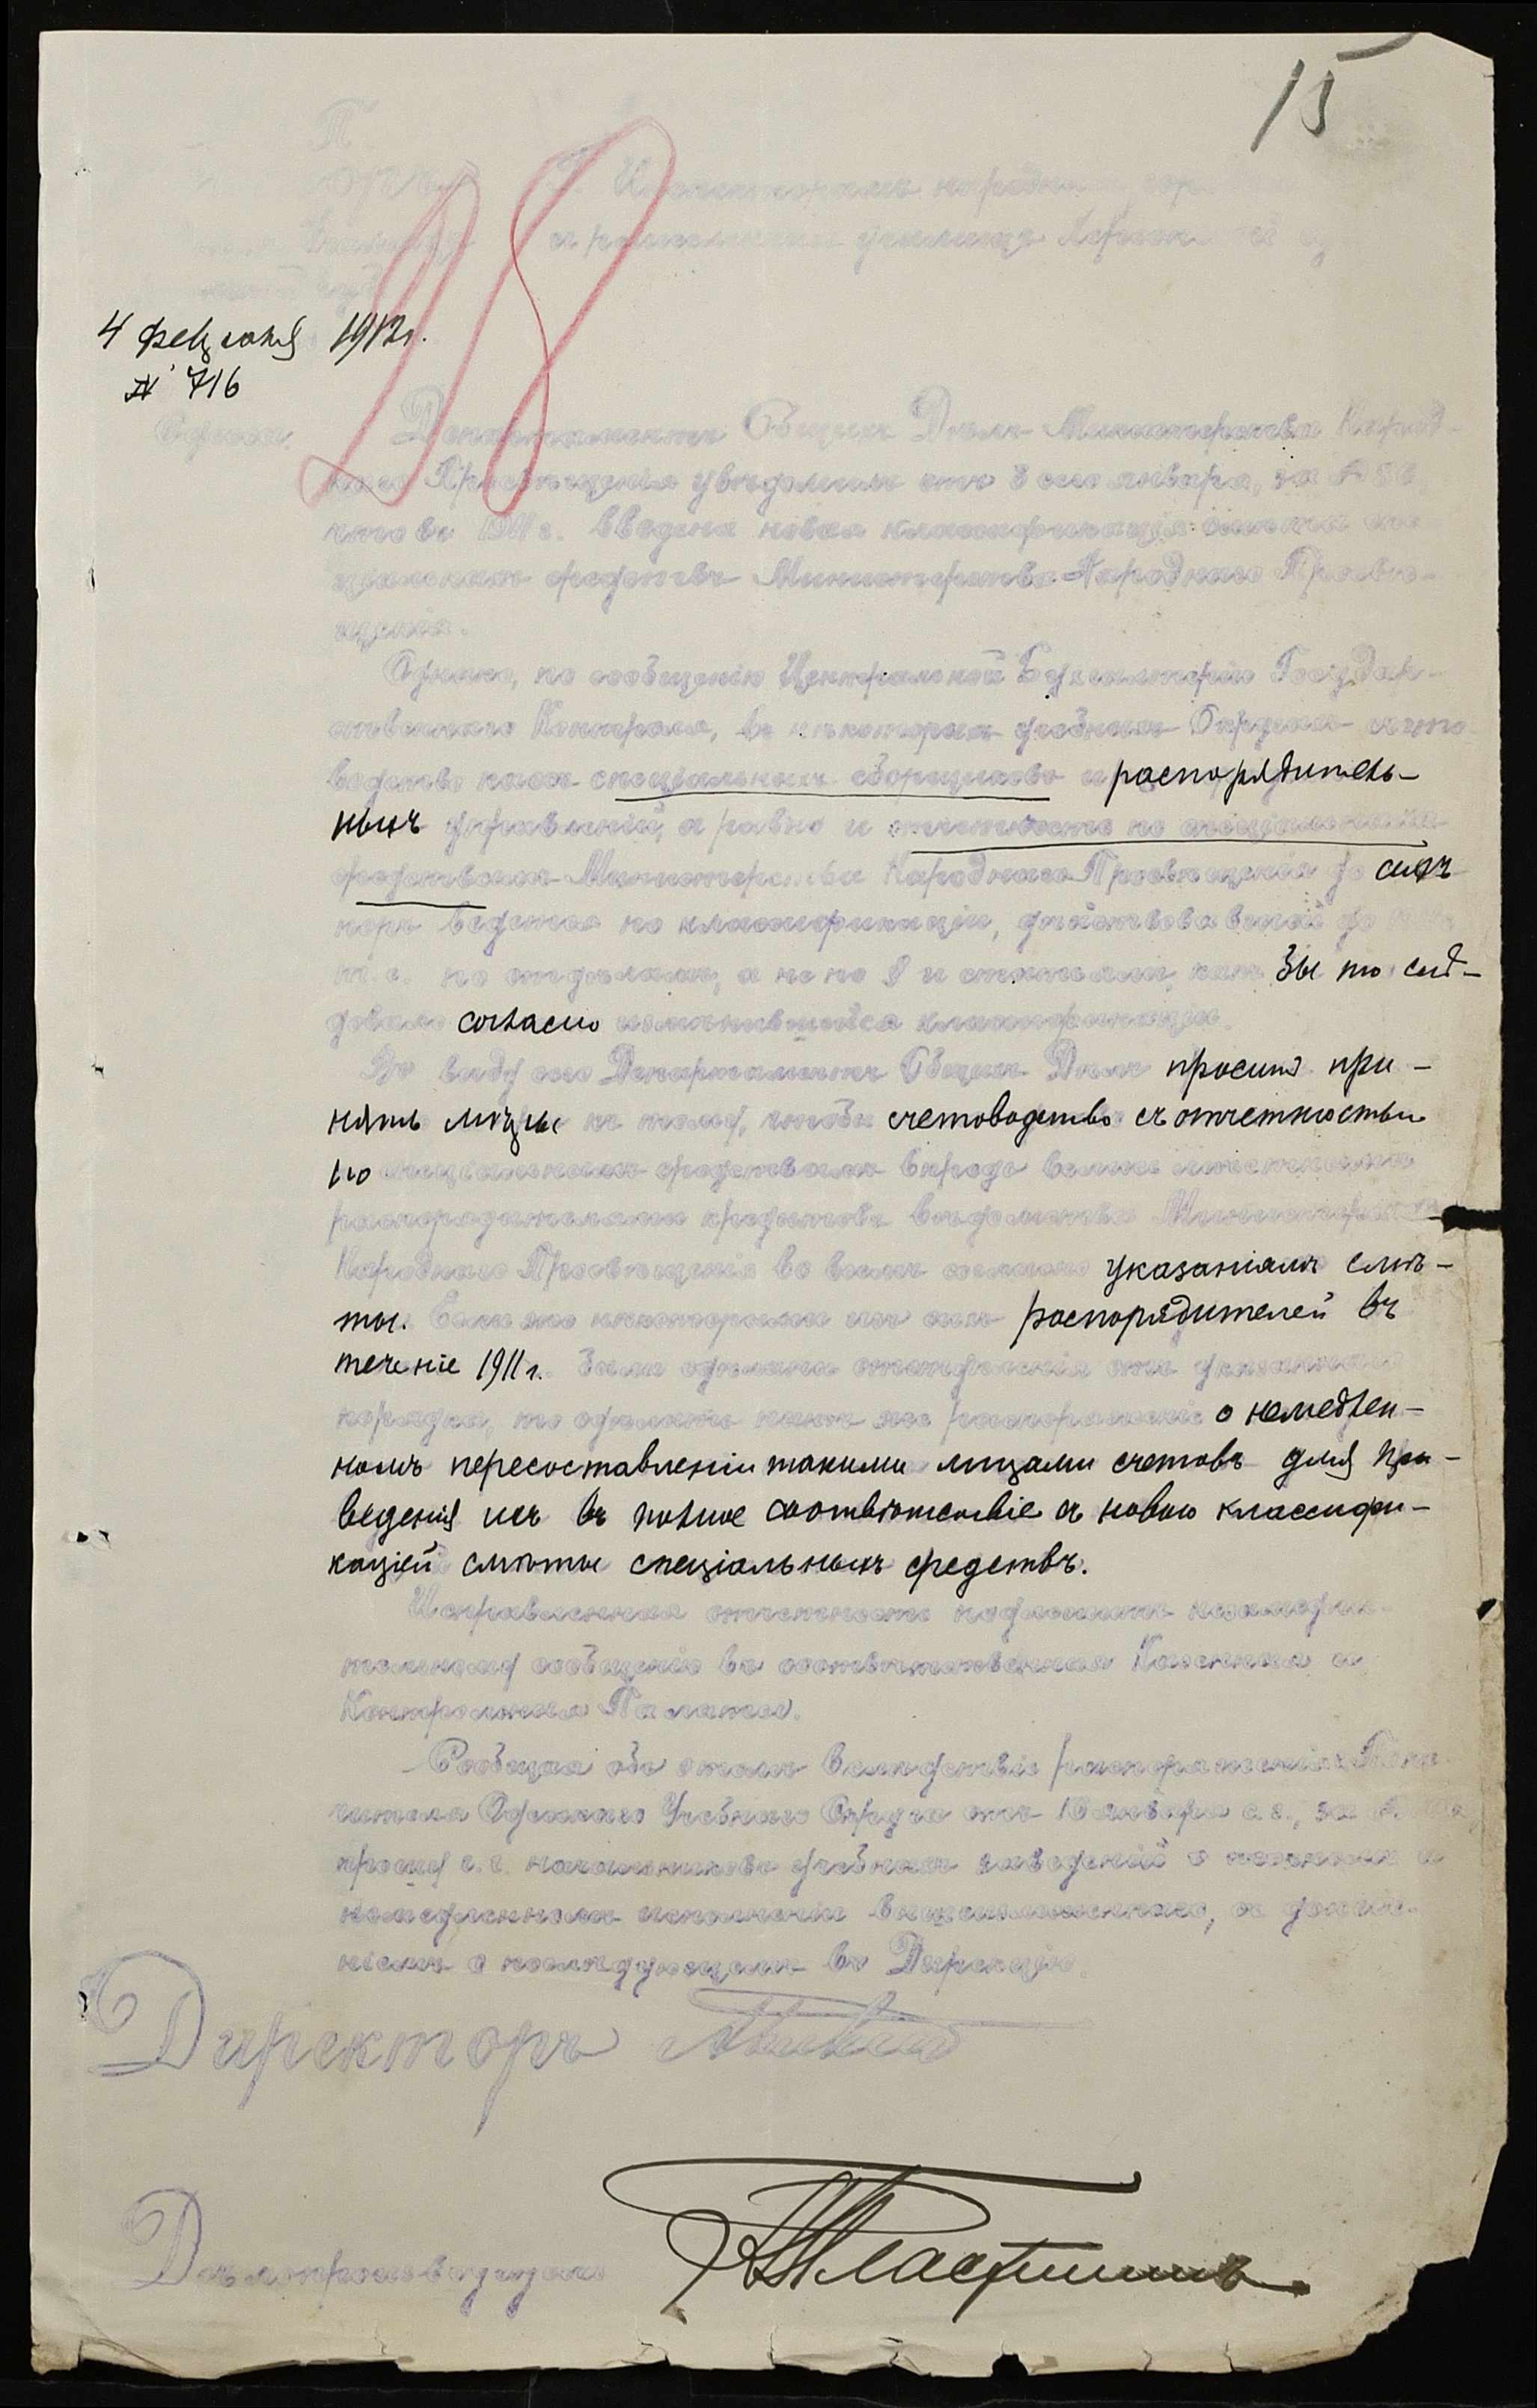 15
18
4 февраля 1912г.
№ 716
Одесса.
Департаментъ Общихъ Дѣлъ Министерства Народ-
наго Просвѣщенія увѣдомилъ отъ 3 сего января, за №
что въ 1911 г. введена новая классификація смѣты спе
ціальныхъ средствъ Министерства Народнаго Просвѣ-
щенія.
Однако, по сообщенію Центральной Бухгалтеріи Государ-
ственнаго Контроля, въ нѣкоторыхъ учебныхъ Округахъ счето
водство какъ спеціальныхъ сборщиковъ и распорядитель-
ныхъ управленій, а равно и отчетность по спеціальнымъ
средствамъ Министерства Народнаго Просвѣщенія до сихъ
поръ ведется по классификаціи, дѣйствовавшей до
т.е. по отдѣламъ, а не по § и статьямъ, какъ бы то слѣ-
довало согласно измѣнившейся классификаціи.
Въ виду сего Департаментъ Общихъ Дѣлъ проситъ при-
нять мѣры къ тому, чтобы счетоводство съ отчетностью
по спеціальнымъ средствамъ впредь велись мѣстными
распорядителями кредитовъ вѣдомства Министерства
Народнаго Просвѣщенія во всемъ согласно указаніямъ смѣ-
ты. Если же нѣкоторыми изъ сихъ распорядителей въ
теченіе 1911 г. были сдѣланы отступленія отъ указаннаго
порядка, то сдѣлать нынѣ же распоряженіе о немедлен-
номъ пересоставленіи такими лицами счетовъ для при-
веденія ихъ въ полное соотвѣтствіе съ новою классифи-
каціей смѣты спеціальныхъ средствъ.
Исправленная отчетность подлежитъ незамедли-
тельному сообщенію въ соотвѣтственныя Казенныя и
Контрольныя Палаты.
Сообщая объ этомъ вслѣдствіе распоряженія Попе
чителя Одесскаго Учебнаго Округа отъ 10 января с.г., за №
прошу г.г. начальниковъ учебныхъ заведеній о точномъ и
немедленномъ исполненіи вышеизложеннаго, съ донесе-
ніемъ о послѣдующемъ въ Дирекцію.
Директоръ
Дѣлопроизводитель